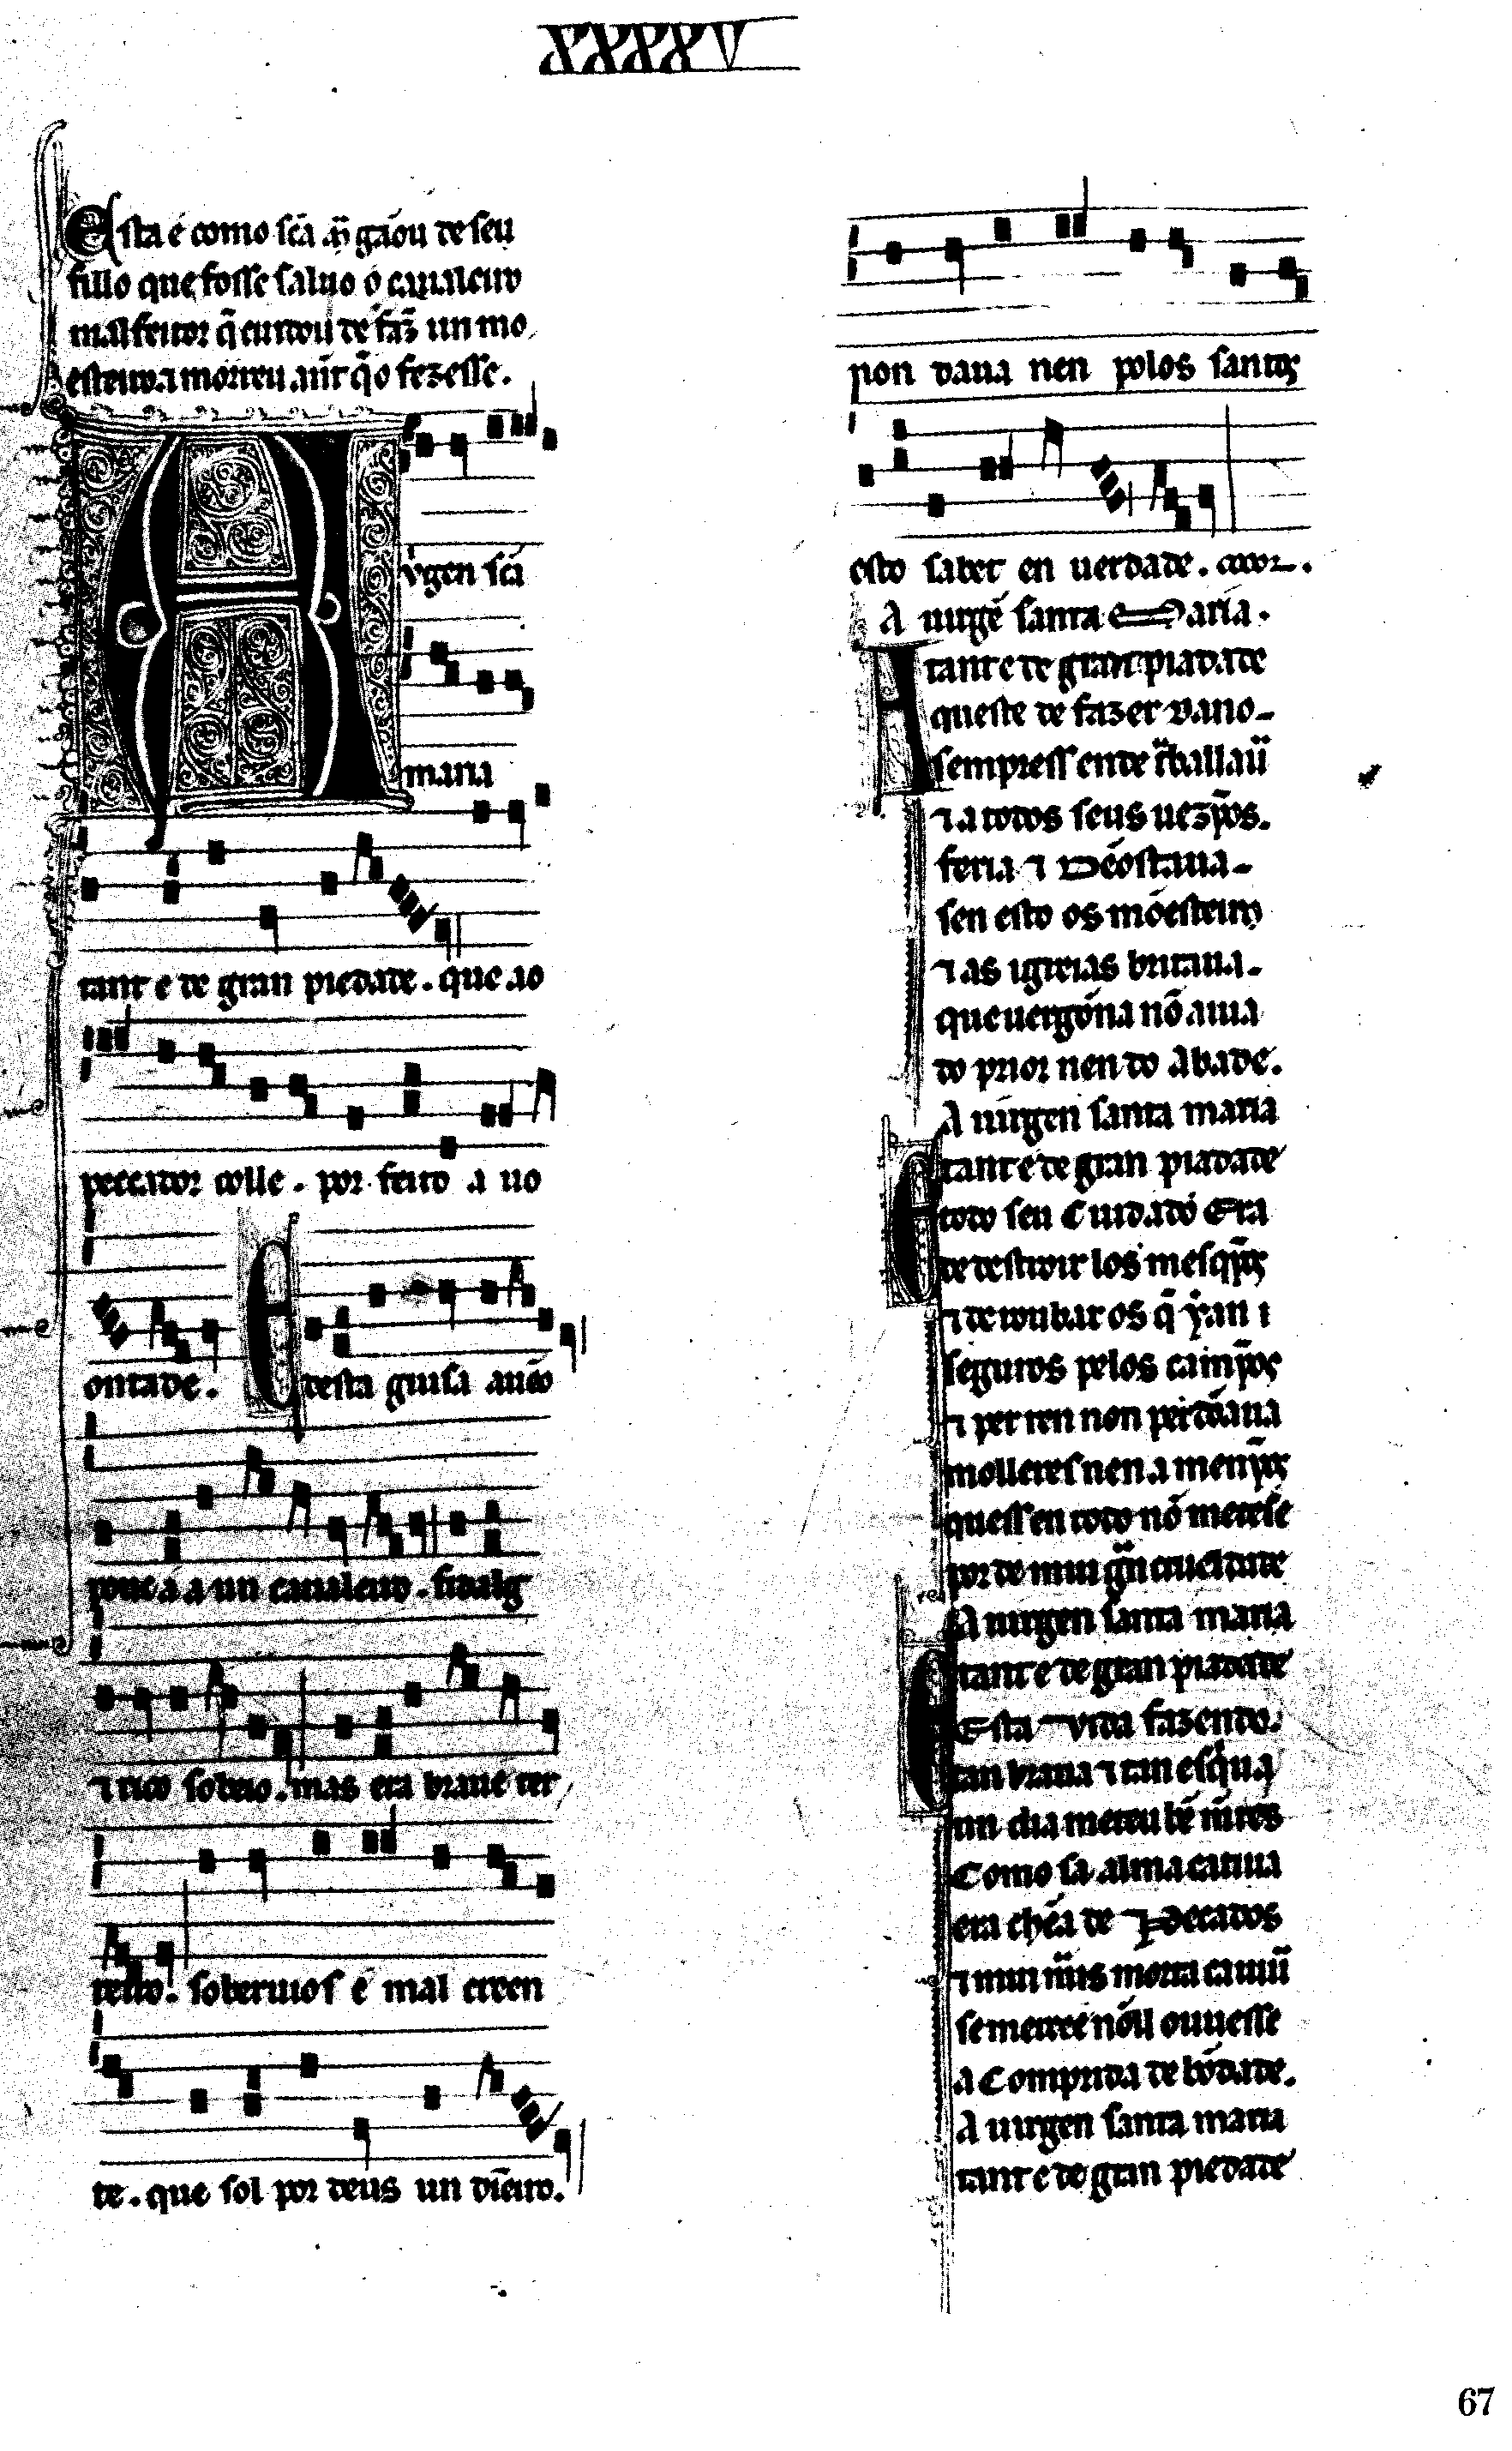 XXXXV
Esta é como sc̃a m̃ gãou de seu
fillo que fosse saluo o caualeiro
malfeitor q̃ cuidou de faz̃ un mo
esteiro ⁊ morreu ant̃ q̃o fezesse.
A vırgen sc̃a
maria
tant e de gran piedade. que ao
peccador colle. por feito a uo
ontade. E desta guisa auẽo
pouc á a un caualeiro. fidalg
⁊ rico sobeio. mas era braue ter
reiro. soberuios e mal creen
te. que sol por deus un dĩeiro.
non daua nen polos santos
esto saber en uerdade. coor.
A uirgẽ santa Maria.
tant e de gran piadade
A queste de fazer dano
sempress ende tᵃballaũ
⁊ a todos seus uezỹos.
feria ⁊ Deostaua
sen esto os mõesteiros
⁊ as igreias britaua
que uergõna nõ auia
do prior nen do Abade.
A uirgen santa maria
tant e de gran piadade
E todo seu Cuidado Era
de destroir los mesqỹos
⁊ de roubar os q̃ ỹan
seguros pelos camỹos
⁊ per ren non perdõaua
molleres nen a menỹos
quess en todo nõ metesse
por de mui gᵃn crueldade
A uirgen santa maria
tant e de gran piadade
E Esta vida fazendo.
tan braua ⁊ tan esq̃ua
un dia meteu bẽ mẽtes
Como sa alma catiua
era chẽa de Pecados
⁊ mui mᵃis morta ca uiuᵃ
se mercee nõll ouuesse
a Comprida de bõdade.
A uirgen santa maria
tant e de gran piedade
67